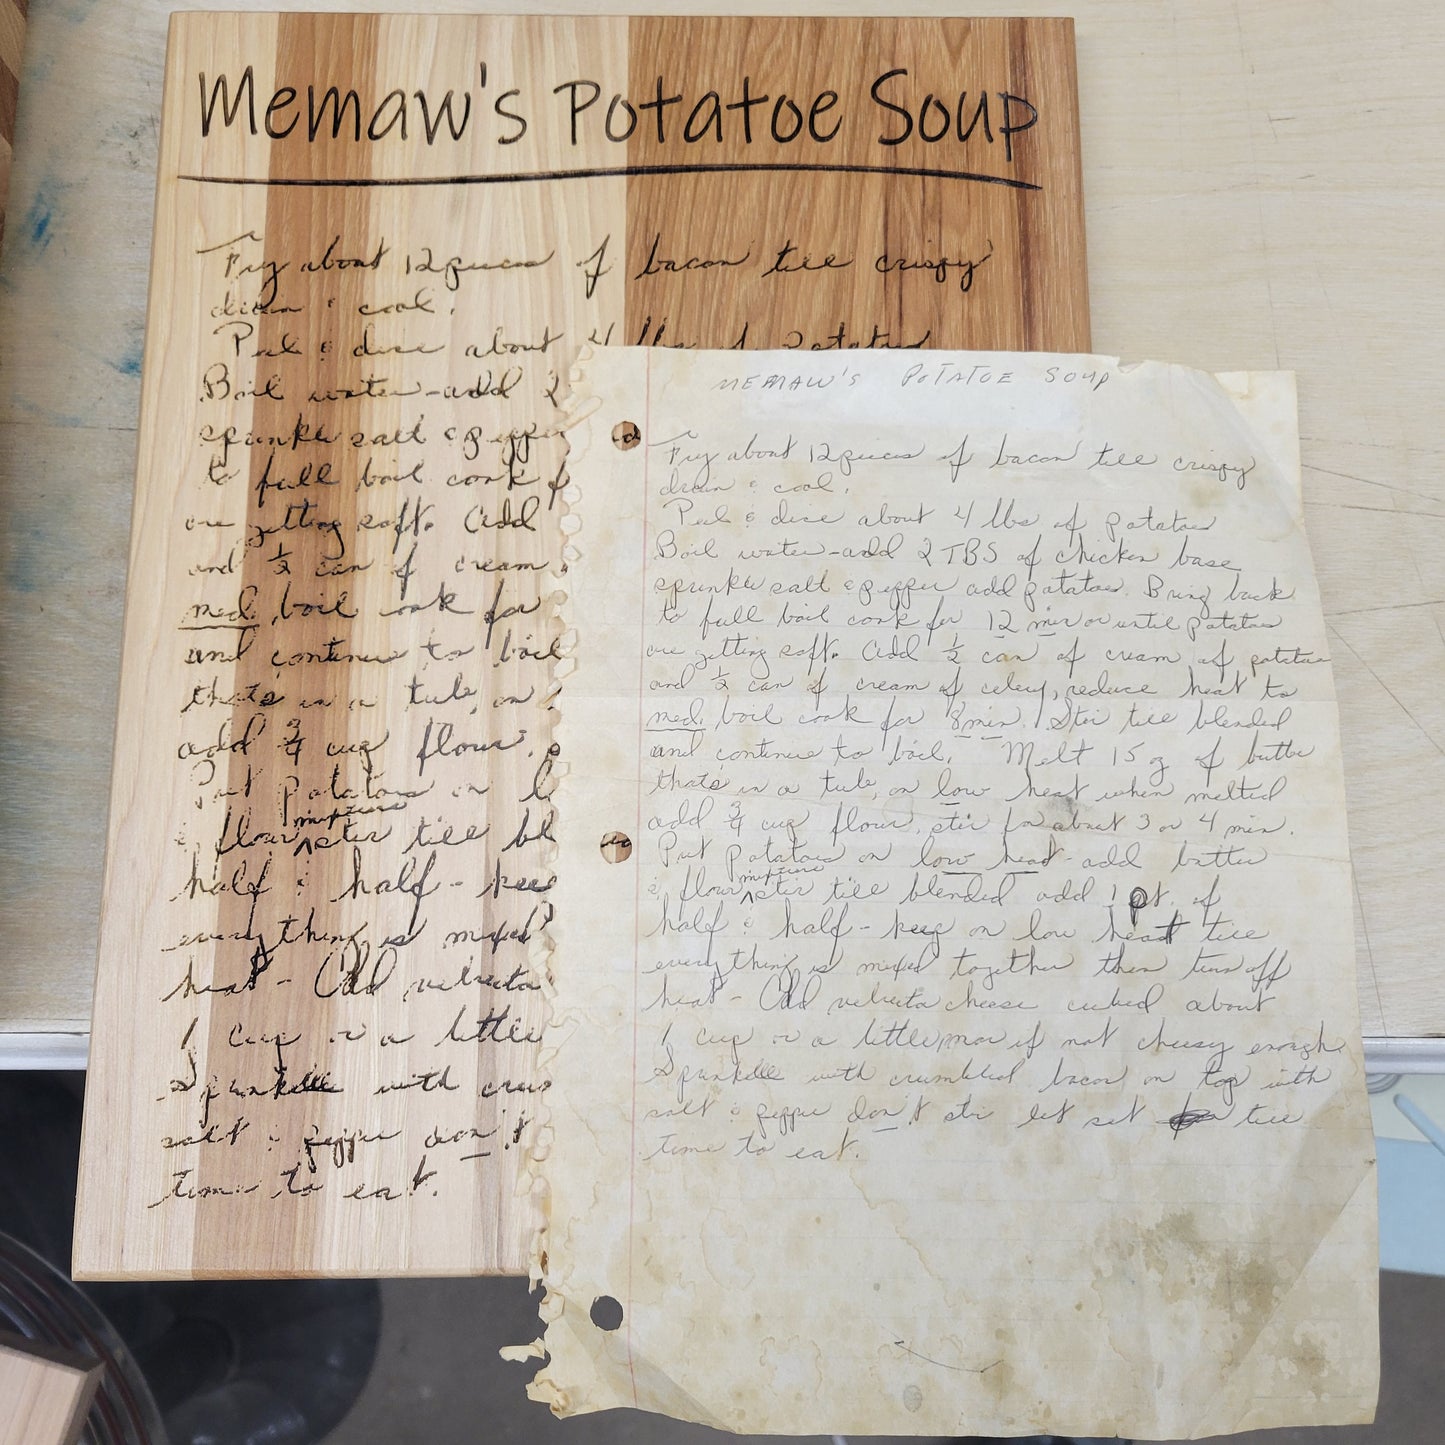 Memaw's Potatoe Soup
Fry about 12 pieces of bacon till crispy
drain & cool.
Peel & dice about 4 lbs of potatoes
Boil water-add 2
sprinkle salt & pepper
to full boil cook f
are getting soft. Add
and ½ can of cream
med. boil cook for
and continue to boil
thats in a tub, on
add ¾ cup flour,
Put potatoes on l
mixture
& flour ^ stir till bl
half & half - keep
everything is mixed
heat - Add velveeta
1 cup or a little
Sprinkle with crum
salt & pepper don't
time to eat.
MEMAW'S POTATOE SOUP
Fry about 12 pieces of bacon till crispy
drain & cool.
Peel & dice about 4 lbs of potatoes
Boil water-add 2 TBS of chicken base
sprinkle salt & pepper add potatoes. Bring back
to full boil cook for 12 min or until potatoes
are getting soft. Add ½ can of cream of potatoe
and ½ can of cream of celery, reduce heat to
med. boil cook for 8 min. Stir till blended
and continue to boil. Melt 15 oz of butter
thats in a tub, on low heat when melted
add ¾ cup flour, stir for about 3 or 4 min.
Put potatoes on low heat - add butter
mixture
& flour ^ stir till blended add 1 pt. of
half & half - keep on low heat till
everything is mixed together then turn off
heat - Add velveeta cheese cubed about
1 cup or a little more if not cheesy enough.
Sprinkle with crumbled bacon on top with
salt & pepper don't stir let set till
time to eat.